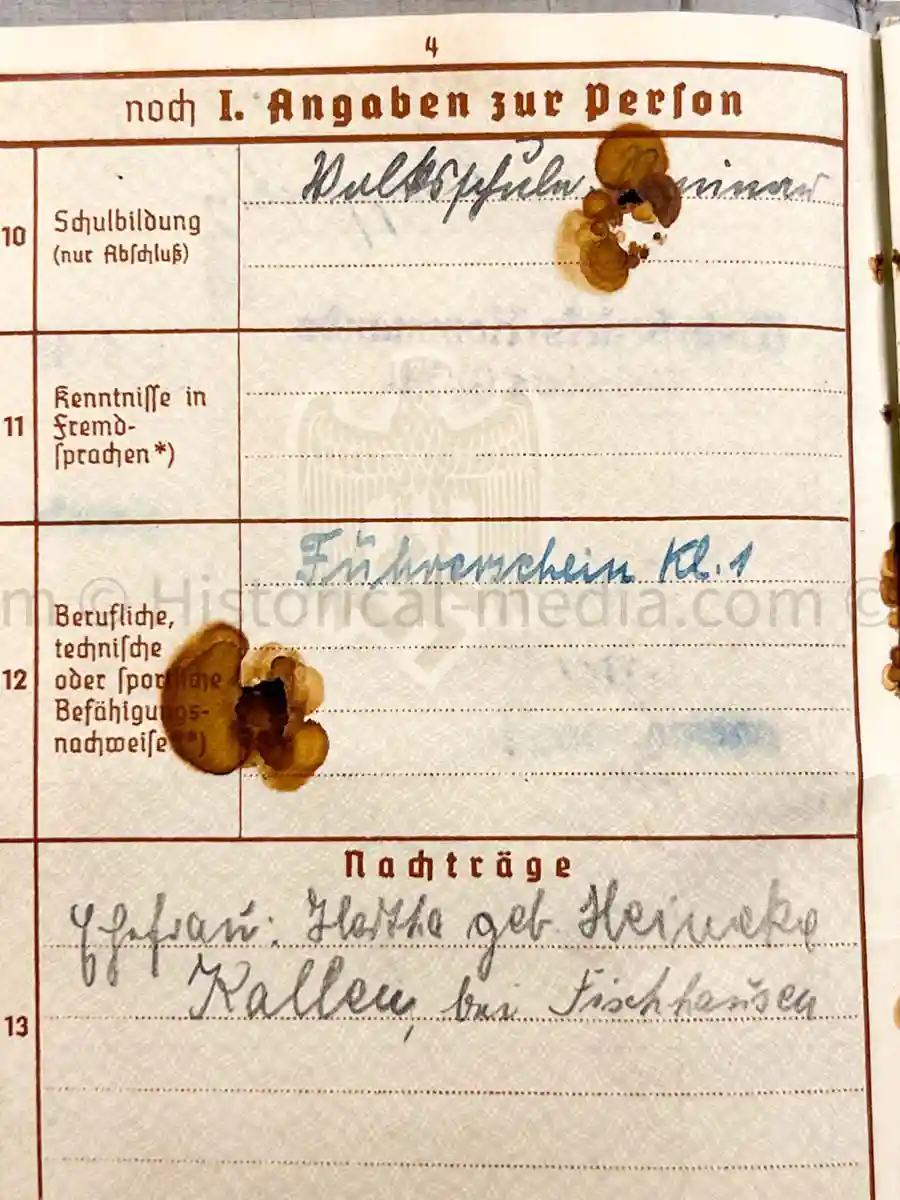 4
noch I. Angaben zur Person
10
Schulbildung
(nur Abschluß)
Volksschule.
11
Kenntnisse in
Fremd-
sprachen*)
12
Berufliche,
technische
oder sportliche
Befähigungs-
nachweise**)
Führerschein Kl. 1
© Historical-media.com ©
Nachträge
13
Ehefrau: Hertha geb Heineke
Kallen, bei Fischhausen